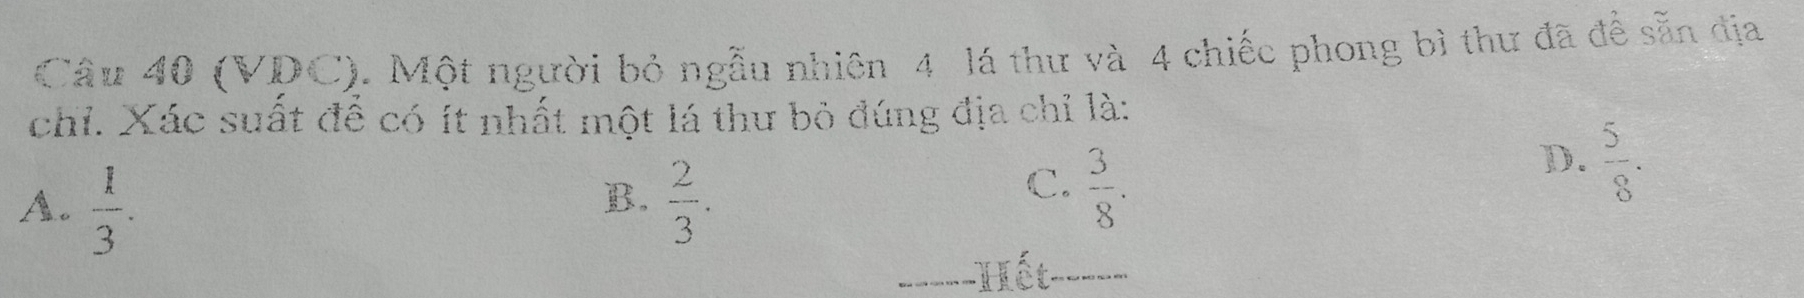 Câu 40 (VDC). Một người bỏ ngẫu nhiên 4 lá thư và 4 chiếc phong bì thư đã để sẵn địa
chỉ. Xác suất để có ít nhất một lá thư bỏ đúng địa chỉ là:
A. 1/3. B. 2/3. C. 3/8. D. 5/8.
-----Hết-----